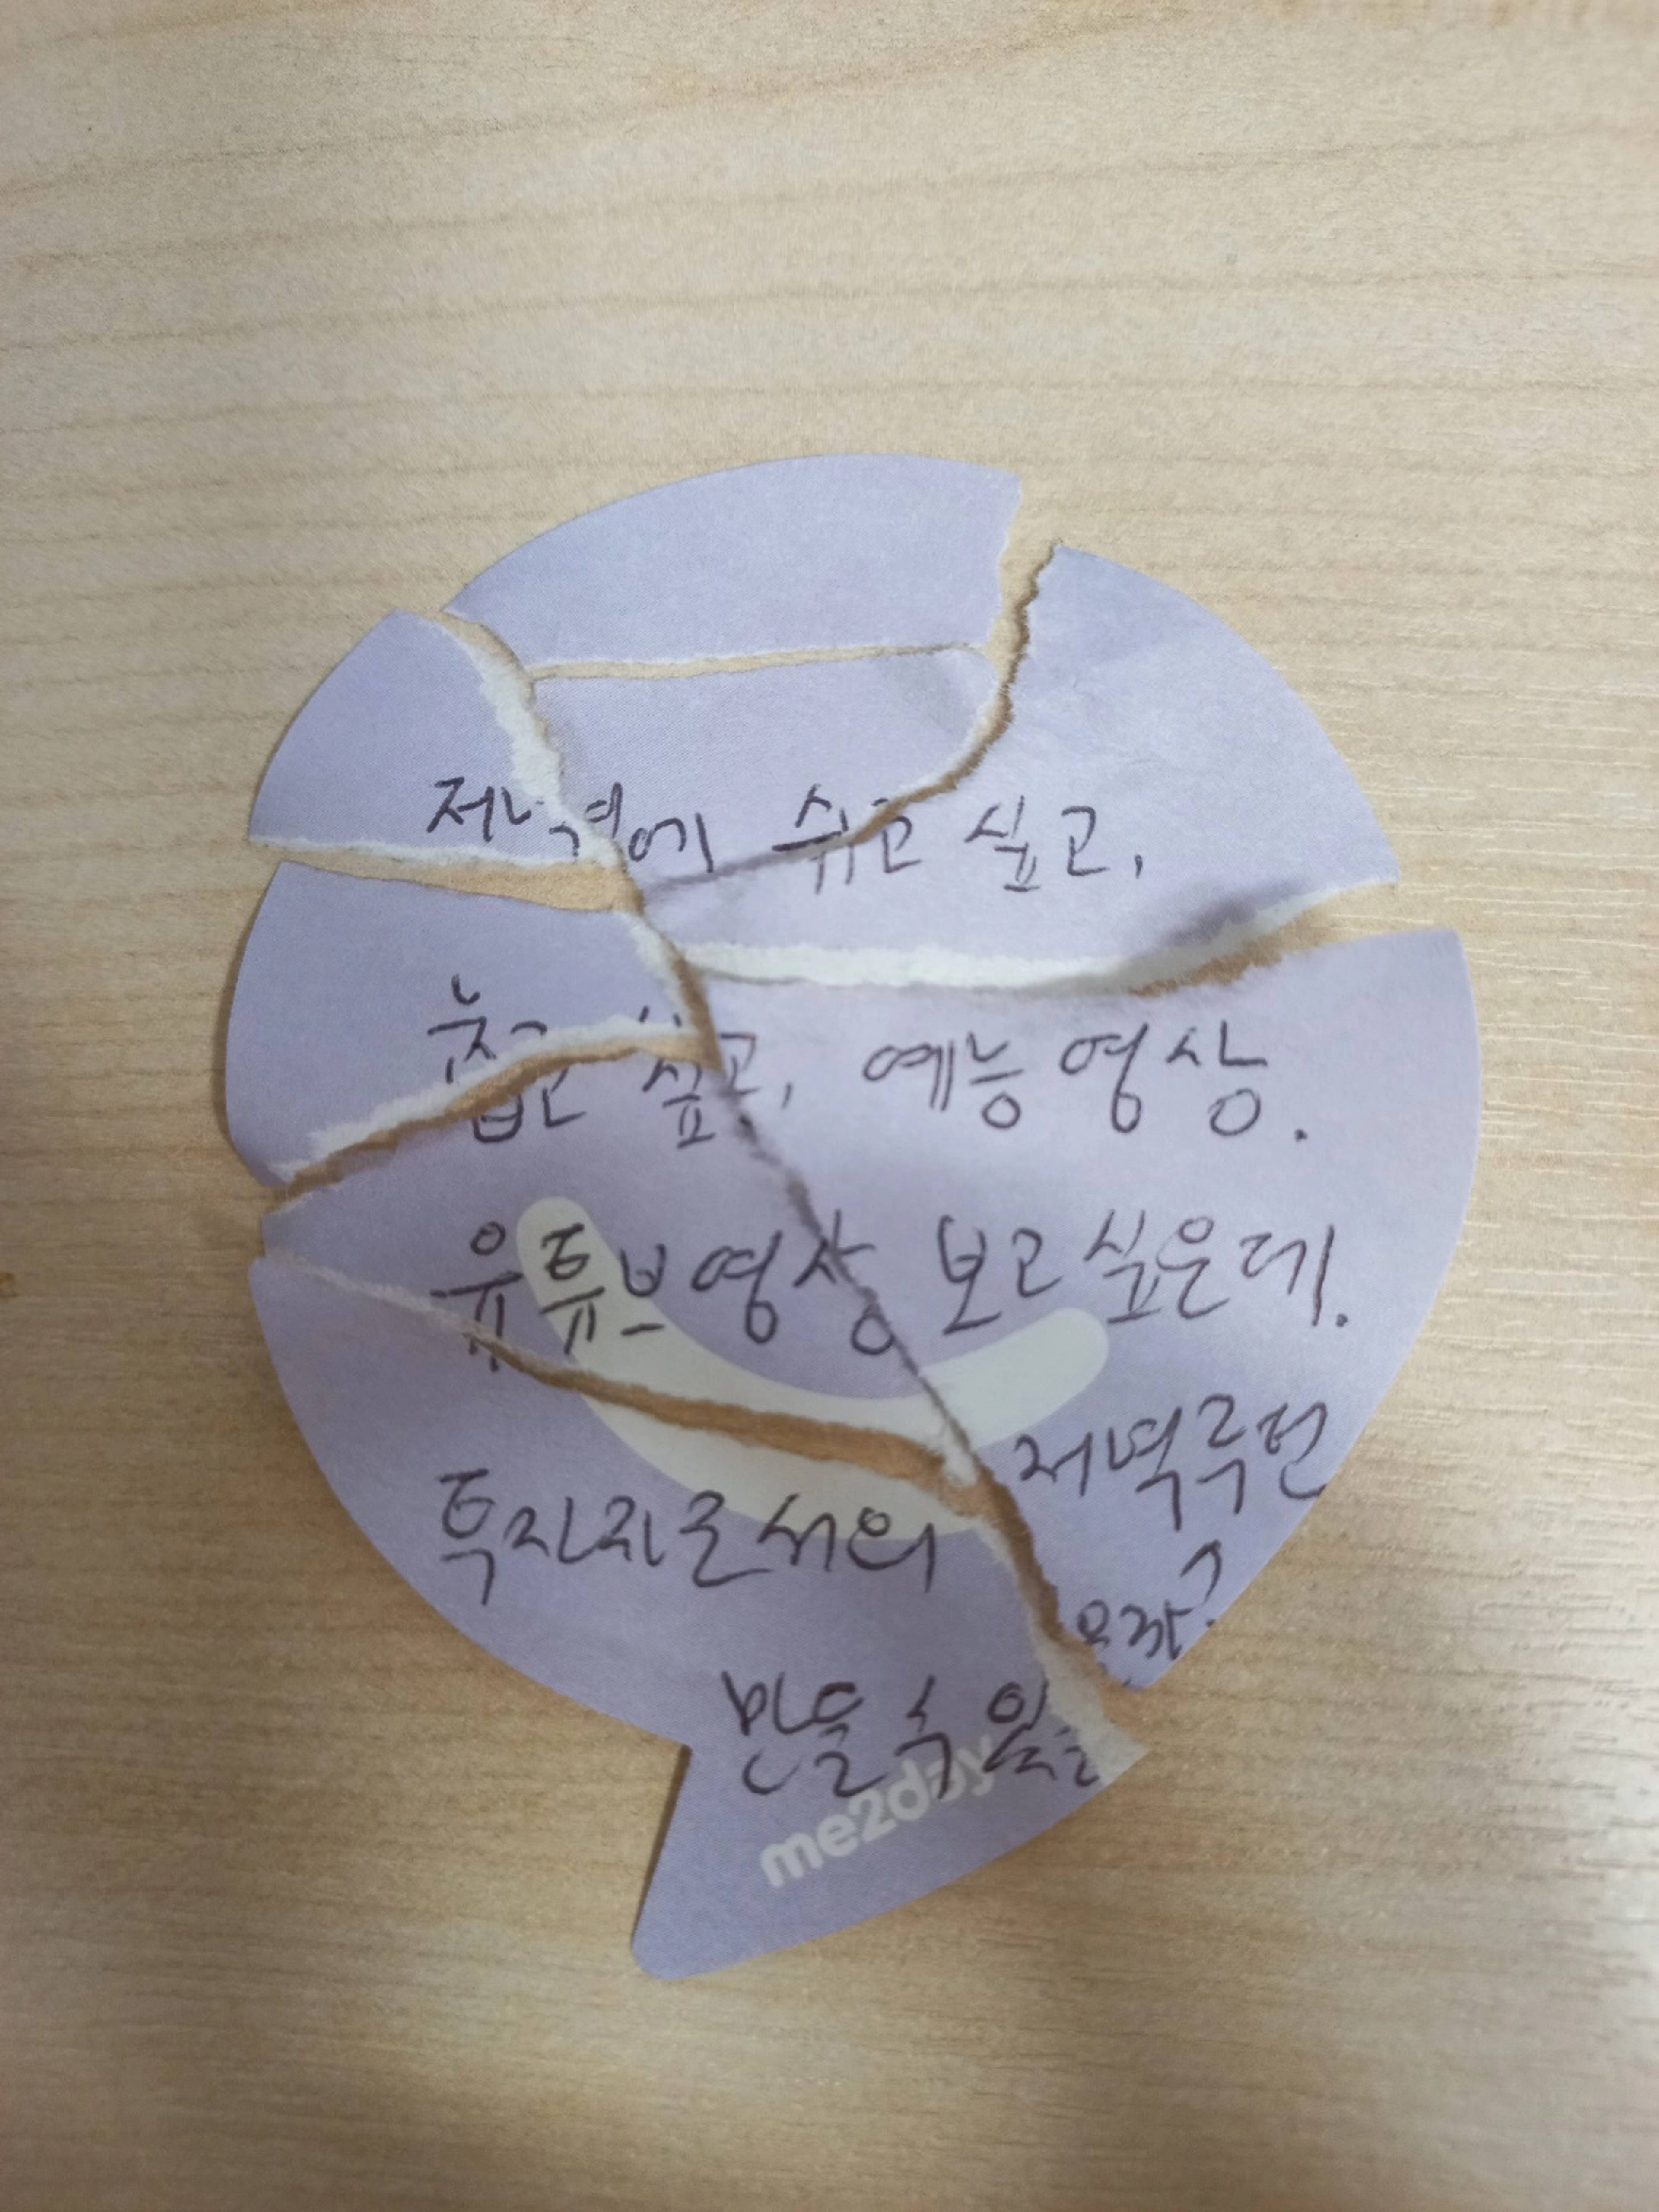 저녁에 쉬고 싶고,
눕고 싶고, 예능 영상.
유튜브 영상 보고 싶은데.
투자자로서의 저녁루틴
만들 수 있을
으까?
me2day